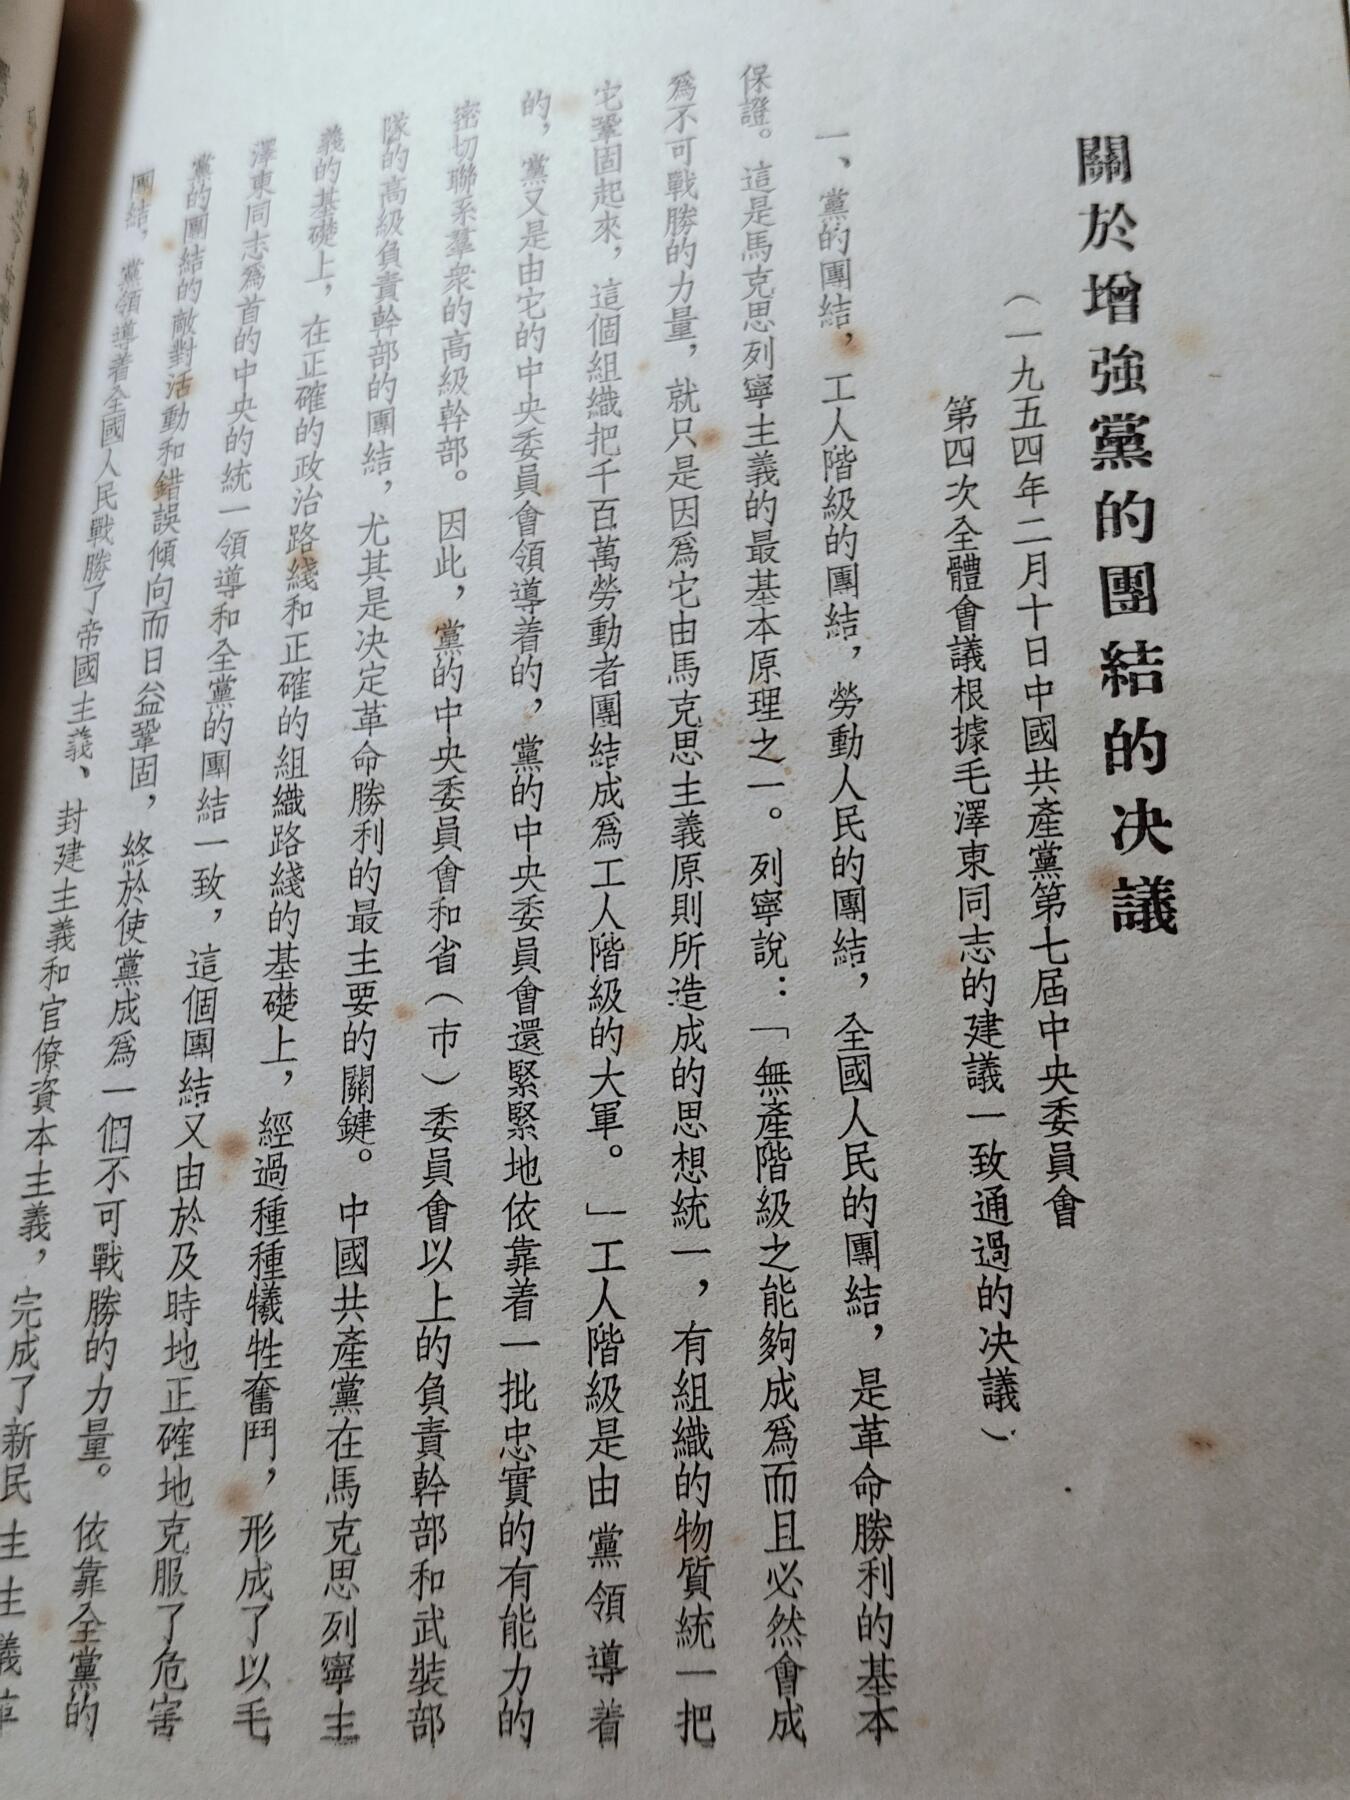 關於增強黨的團結的决議
（一九五四年二月十日中國共產黨第七屆中央委員會
第四次全體會議根據毛澤東同志的建議一致通過的决議）
一、黨的團結，工人階級的團結，勞動人民的團結，全國人民的團結，是革命勝利的基本
保證。這是馬克思列寧主義的最基本原理之一。列寧說：「無產階級之能夠成爲而且必然會成
爲不可戰勝的力量，就只是因爲它由馬克思主義原則所造成的思想統一，有組織的物質統一把
它鞏固起來，這個組織把千百萬勞動者團結成爲工人階級的大軍。」工人階級是由黨領導着
的，黨又是由它的中央委員會領導着的，黨的中央委員會還緊緊地依靠着一批忠實的有能力的
密切聯系羣衆的高級幹部。因此，黨的中央委員會和省（市）委員會以上的負責幹部和武裝部
隊的高級負責幹部的團結，尤其是决定革命勝利的最主要的關鍵。中國共產黨在馬克思列寧主
義的基礎上，在正確的政治路綫和正確的組織路綫的基礎上，經過種種犧牲奮鬥，形成了以毛
澤東同志爲首的中央的統一領導和全黨的團結一致，這個團結又由於及時地正確地克服了危害
黨的團結的敵對活動和錯誤傾向而日益鞏固，終於使黨成爲一個不可戰勝的力量。依靠全黨的
團結，黨領導着全國人民戰勝了帝國主義、封建主義和官僚資本主義，完成了新民主主義革